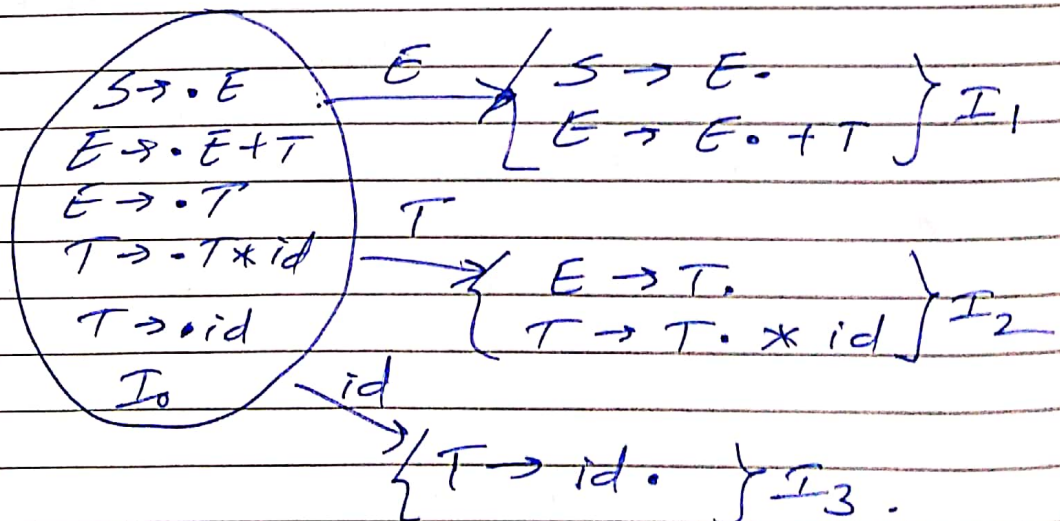 S → . E
E → . E + T
E → . T
T → . T * id
T → . id
I₀
E
S → E .
E → E . + T
I₁
T
E → T .
T → T . * id
I₂
id
T → id .
I₃ .